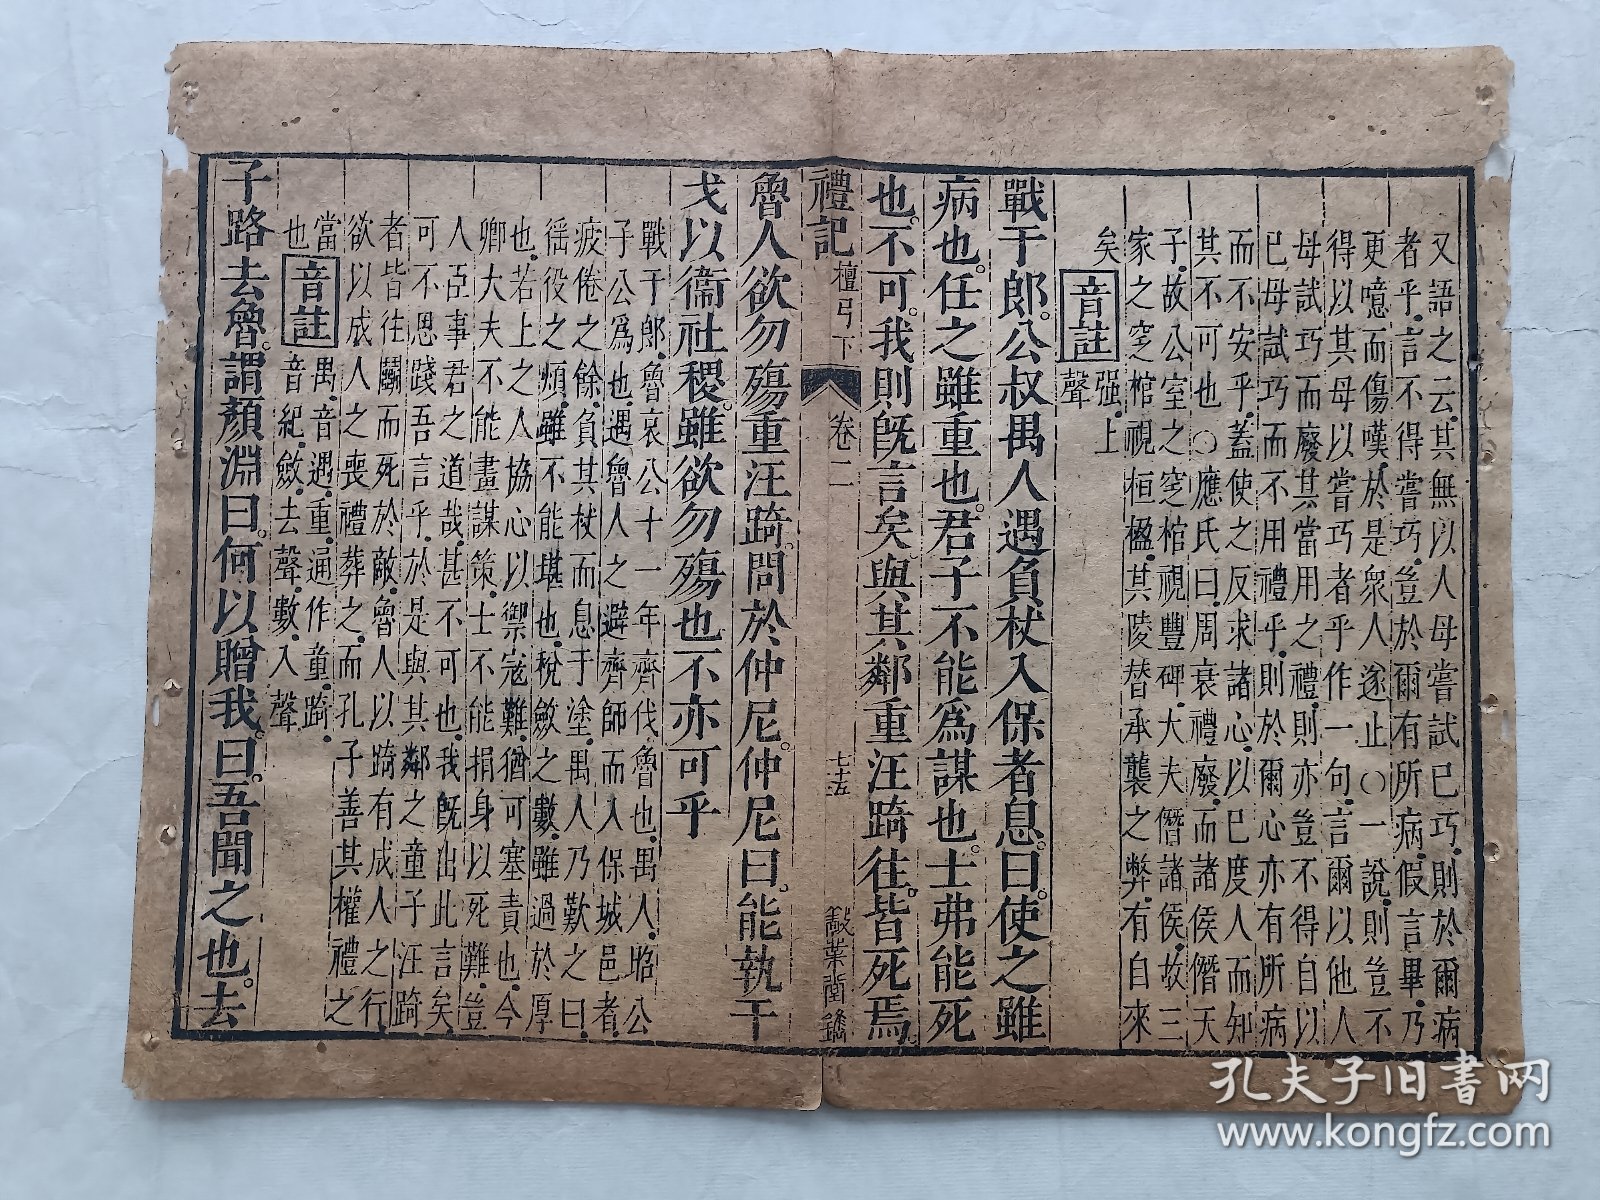 又語之云其無以人母嘗試巳巧則於爾病
者乎言不得嘗巧豈於爾有所病假言畢乃
更噫而傷嘆於是衆人遂止〇一說則豈不
得以其母以嘗巧者乎作一句言爾以他人
母試巧而廢其當用之禮則亦豈不得自以
已母試巧而不用禮乎則於爾心亦有所病
而不安乎蓋使之反求諸心以巳度人而知
其不可也〇應氏曰周衰禮廢而諸侯僭天
子故公室之窆棺視豐碑大夫僭諸侯故三
家之窆棺視桓楹其陵替承襲之弊有自來
矣 音註 强上聲
戰于郎公叔禺人遇負杖入保者息曰使之雖
病也任之雖重也君子不能爲謀也士弗能死
也不可我則旣言矣與其鄰重汪踦往皆死焉
禮記 檀弓下 卷二 七十五
魯人欲勿殤重汪踦問於仲尼仲尼曰能執干
戈以衞社稷雖欲勿殤也不亦可乎
戰于郎魯哀公十一年齊伐魯也禺人昭公
子公爲也遇魯人之避齊師而入保城邑者
疲倦之餘負其杖而息于塗禺人乃歎之曰
徭役之煩雖不能堪也稅斂之數雖過於厚
也若上之人協心以禦寇難猶可塞責也今
卿大夫不能畫謀策士不能捐身以死難豈
人臣事君之道哉甚不可也我旣出此言矣
可不思踐吾言乎於是與其鄰之童子汪踦
者皆往鬭而死於敵魯人以踦有成人之行
欲以成人之喪禮葬之而孔子善其權禮之
當也 音註 禺音遇重通作童踦音紀斂去聲數入聲
子路去魯謂顏淵曰何以贈我曰吾聞之也去
孔夫子旧書网
www.kongfz.com